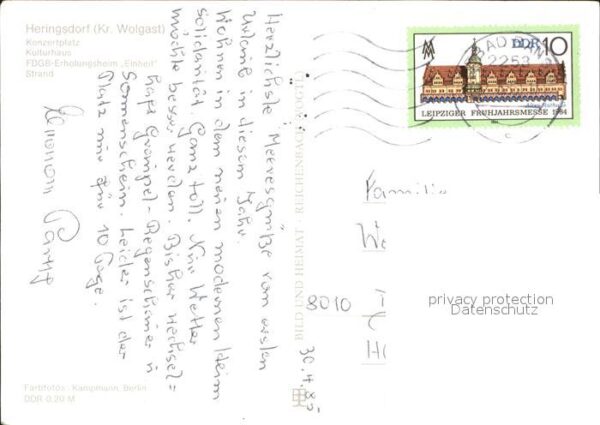 Heringsdorf (Kr. Wolgast)
Konzertplatz
Kulturhaus
FDGB-Erholungsheim „Einheit"
Strand
Herzlichste Meeresgrüße vom ersten
Urlaub in diesem Jahr.
Wohnen in dem neuen modernen Heim
Solidarität. Ganz toll. Nur Wetter
möchte besser werden. Bisher Wechsel=
haft Graupel-Regenschauer u.
Sonnenschein. Leider ist der
Platz nur für 10 Tage.
Farbfotos: Kampmann, Berlin
DDR 0,20 M
BILD UND HEIMAT · REICHENBACH (VOGTL)
30.4.85
DDR 10
LEIPZIGER FRÜHJAHRSMESSE 1984
BAD
2253
c
Familie
8010
privacy protection
Datenschutz